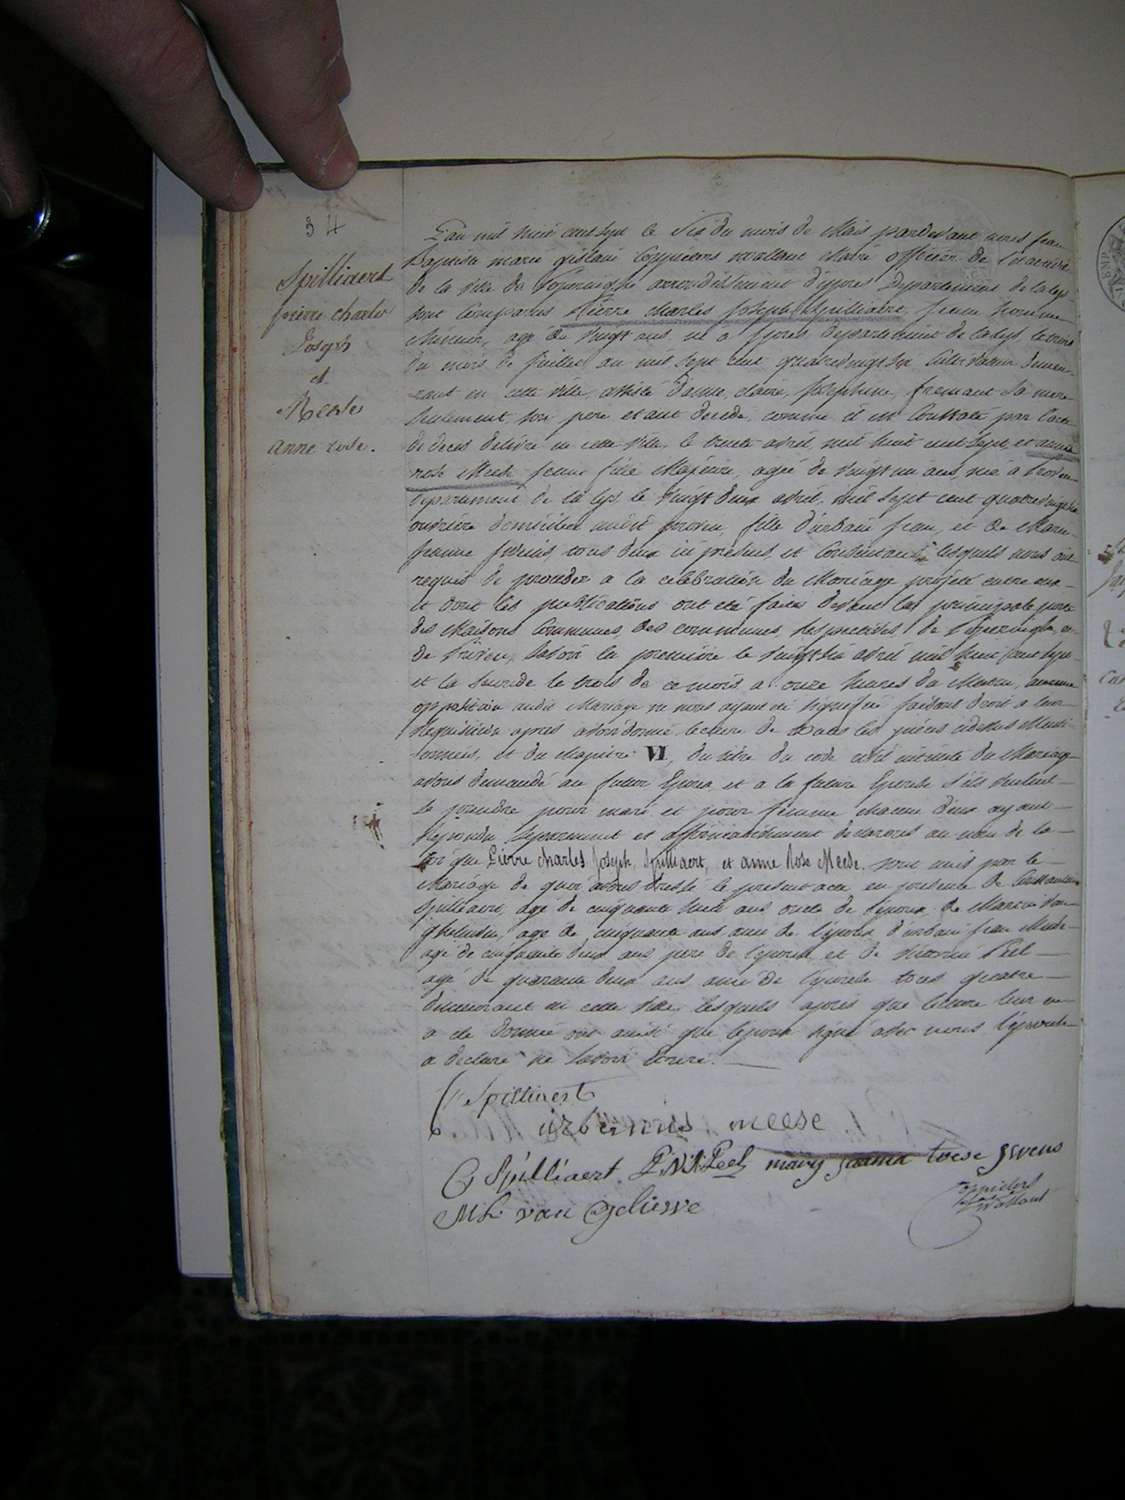 34
Spilliaert
pierre charles
Joseph
et
Meese
anne rose.
L'an mil huit cent sept le Six du mois de Mai pardevant nous jean
Baptiste marie gislain maire officier de l'état civil
de la ville de Poperinghe arrondissement d'ypres Departement de la lys
sont comparus Pierre Charles Joseph Spilliaert, jeune homme
Mineur, agé de vingt ans né a Ypres departement de la lys le trois
du mois de juillet an mil sept cent quatre vingt six demeu-
rant en cette ville assisté d'anne claire Josephine fremaut sa mere
seulement, son pere etant decedé, comme il est constaté par l'acte
de decès delivré en cette ville, le trente avril mil huit cent sept et anne
rose Meese jeune fille Majeure, agée de vingt un ans, née à Proven
departement de la lys le vingt deux avril mil sept cent quatre vingt six
ouvrière domiciliée audit proven, fille d'urbain jean, et de Marie
jeanne tous deux ici présens et consentans lesquels nous ont
requis de proceder a la celebration du Mariage projetté entre eux
et dont les publications ont eté faites devant la principale porte
des Maisons communes des communes respectives de Poperinghe, et
de Proven, savoir la première le vingt six avril mil huit cent sept
et la seconde le trois de ce mois a onze heures du Matin, aucune
opposition audit Mariage ne nous ayant été signifiée faisant droit a leur
requisition après avoir donné lecture de toutes les pièces cidessus Menti-
onnées, et du chapitre VI, du titre du code civil intitulé du Mariage
avons demandé au futur Epoux et a la future Epouse s'ils veulent
se prendre pour mari et pour femme chacun d'eux ayant
repondu séparement et affirmativement declarons au nom de la
loi que Pierre Charles Joseph Spilliaert, et anne Rose Meese. sont unis par le
Mariage de quoi avons dressé le présent acte en presence de
Spilliaert, agé de cinquante huit ans oncle de l'époux de Martin Van
ghelusen, age de cinquante ans ami de l'époux d'urbain jean Meese
agé de cinquante deux ans père de l'épouse et de Peel
agé de quarante deux ans ami de l'epouse tous quatre
demeurant en cette ville, lesquels après que lecture leur en
a eté donné ont ainsi que l'époux signé avec nous l'épouse
a declaré ne savoir Ecrire.
Spilliaert
urbanus meese
C Spilliaert. P. N. A. Peel
M L van Gelusve